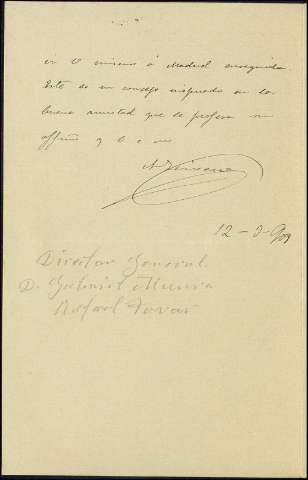 ir V mismo á Madrid enseguida
Este es un consejo inspirado en la
buena amistad que le profesa su
affmo q b s m
A Jimeno
12-3-909
Director General
D. Gabriel Maura
Rafael Tovar